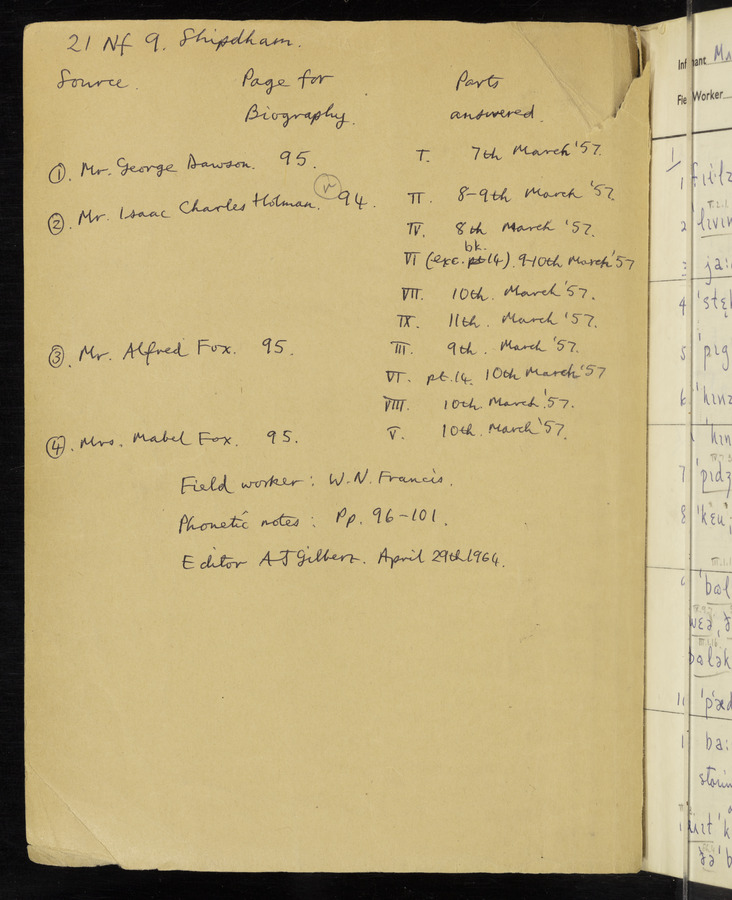 21 Nf 9. Shipdham.
Source. Page for Parts
Biography. answered.
①. Mr. George Dawson. 95. I. 7th March '57.
②. Mr. Isaac Charles Holman. 94. II. 8-9th March '57.
IV. 8th March '57.
bk.
VI (exc. pt 14). 9-10th March '57
VII. 10th. March '57.
IX. 11th. March '57.
③. Mr. Alfred Fox. 95. III. 9th. March '57.
VI. pt. 14. 10th March '57
VIII. 10th. March '57.
④. Mrs. Mabel Fox. 95. V. 10th. March '57.
Field worker: W.N. Francis.
Phonetic notes: Pp. 96-101.
Editor A J Gilbert. April 29th 1964.
Inf ant
Fie Worker
1
2
3 ja:
4
5
6
7
8